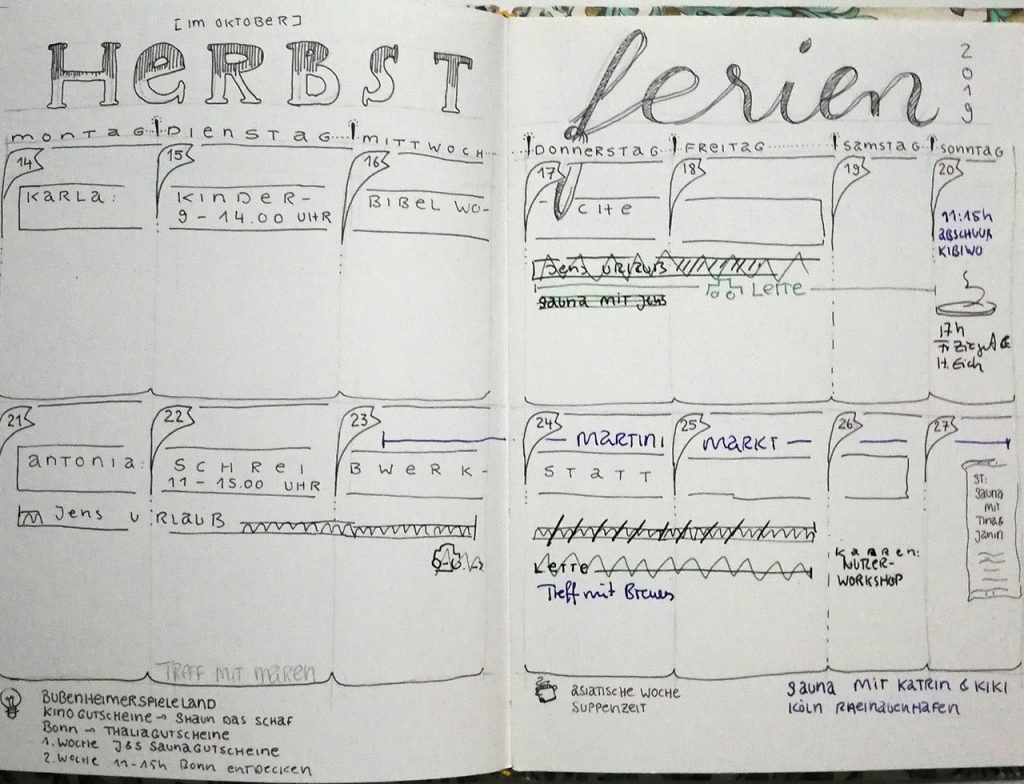 [IM OKTOBER]
HERBST
MONTAG DIENSTAG MITTWOCH
14 15 16
KARLA: KINDER- BIBEL WO-
9 - 14.00 UHR
21 22 23
ANTONIA: SCHREI BWERK-
11 - 15.00 UHR
JENS URLAUB
TREFF MIT MAREN
BUBENHEIMERSPIELELAND
KINOGUTSCHEINE → SHAUN DAS SCHAF
BONN → THALIAGUTSCHEINE
1. WOCHE J&S SAUNAGUTSCHEINE
2. WOCHE 11-15h BONN ENTDECKEN
ferien
2019
DONNERSTAG FREITAG SAMSTAG SONNTAG
17 18 19 20
- CHE
11:15h
KIBIWO
JENS URLAUB
LETTE
SAUNA MIT JENS
17h
H. Eich
24 25 26 27
MARTINI MARKT
STATT
ST:
SAUNA
MIT
TINA &
JANIN
KARREN:
NUTZER-
WORKSHOP
LETTE
Treff mit
ASIATISCHE WOCHE
SUPPENZEIT
SAUNA MIT KATRIN & KIKI
KÖLN RHEINAUENHAFEN